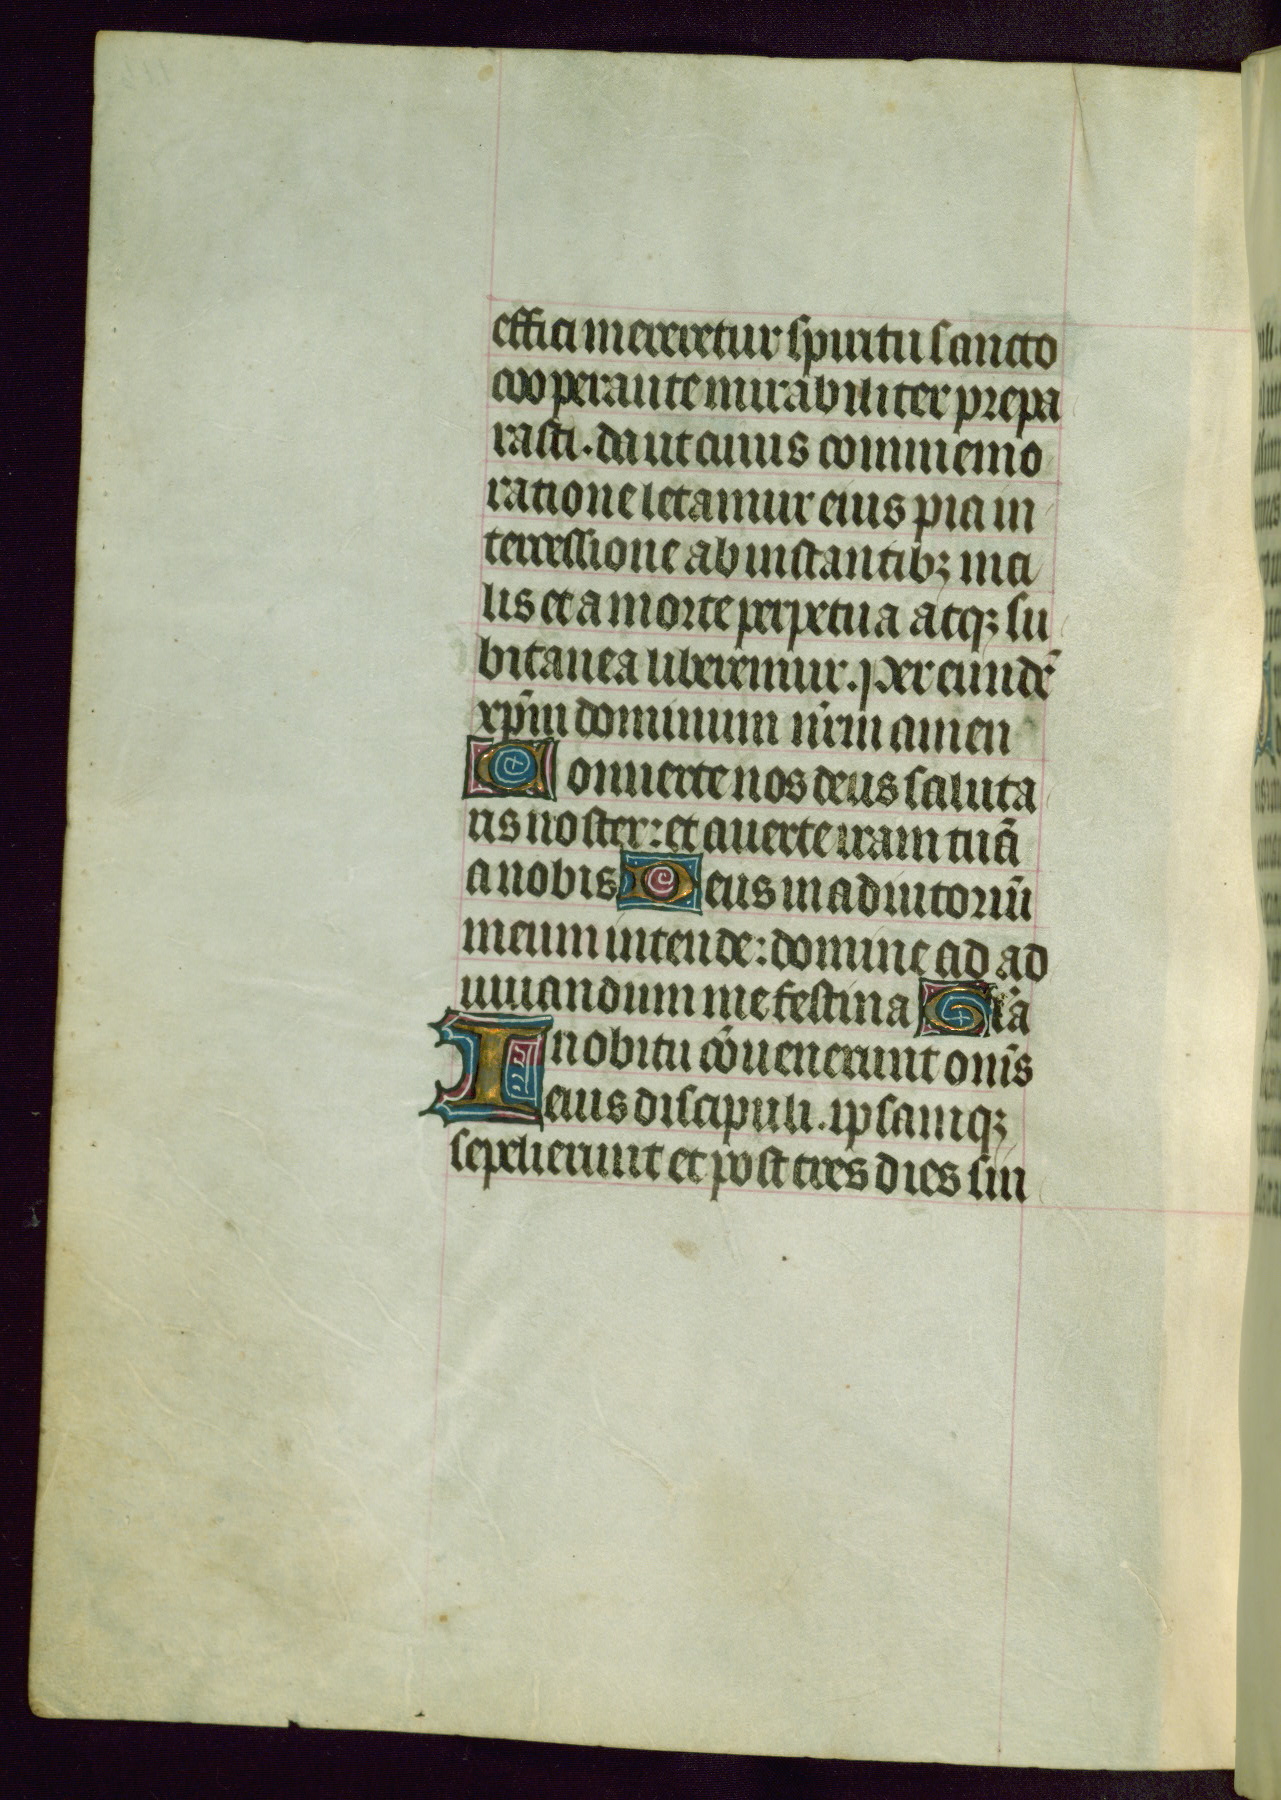 effici mereretur spiritu sancto
cooperante mirabiliter prepa
rasti. da ut cuius commemo
ratione letamur eius pia in
tercessione ab instantibꝫ ma
lis et a morte perpetua atqꝫ su
bitanea liberemur. per eundē
xp̄m dominum nr̄m amen
Conuerte nos deus saluta
ris noster: et auerte iram tuā
a nobis Deus in adiutoriū
meum intende: domine ad ad
iuuandum me festina Gl̄ā
In obitu cōuenerunt om̄s
eius discipuli. ipsamqꝫ
sepelierunt et post tres dies sui